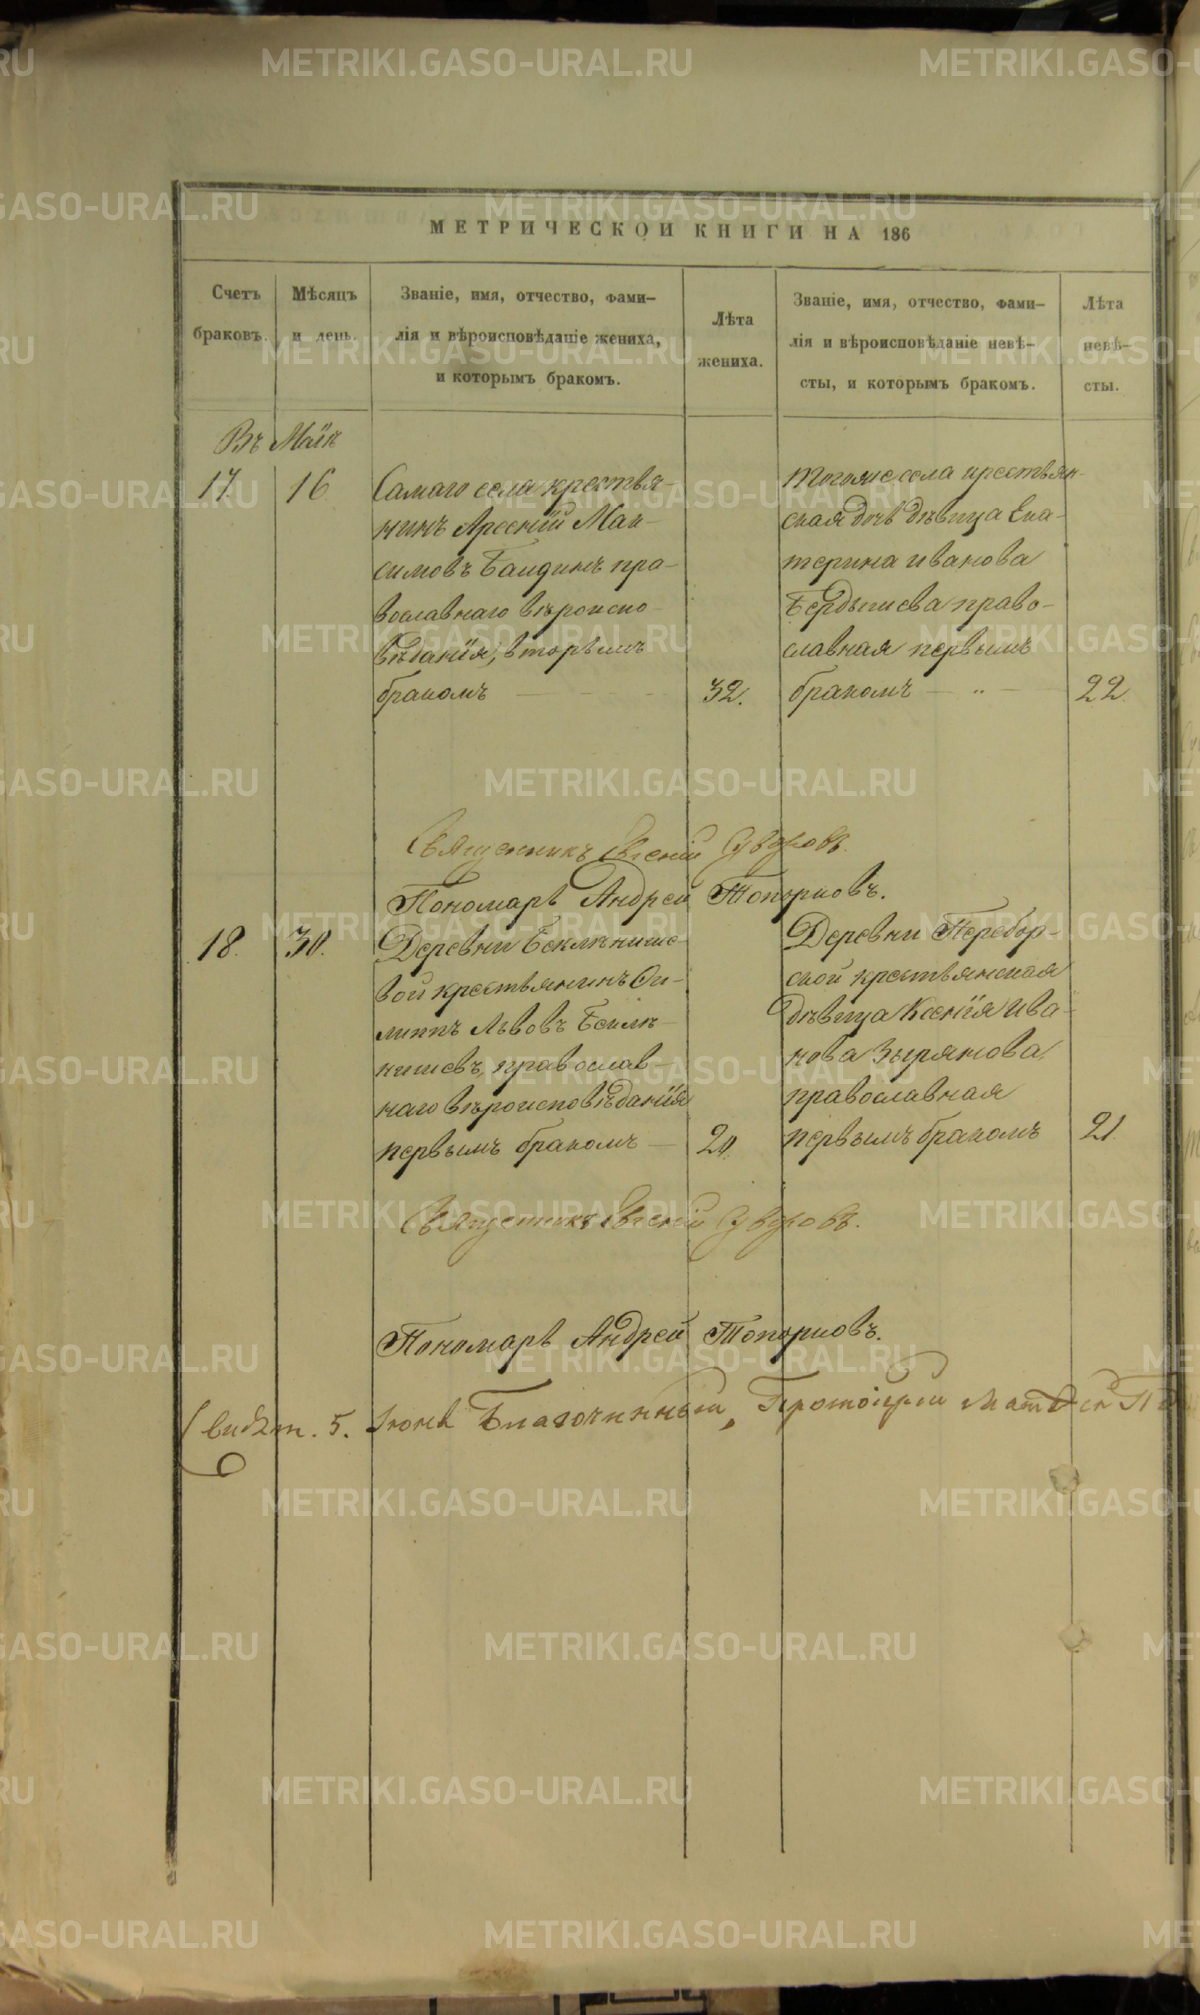 МЕТРИЧЕСКОЙ КНИГИ НА 186
Счетъ браковъ.
Мѣсяцъ и день.
Званіе, имя, отчество, фами-
лія и вѣроисповѣданіе жениха,
и которымъ бракомъ.
Лѣта жениха.
Званіе, имя, отчество, фами-
лія и вѣроисповѣданіе невѣ-
сты, и которымъ бракомъ.
Лѣта невѣ-
сты.
Въ Маѣ
17. 16
Самаго села крестья-
нинъ Арсеній Мак-
симовъ Баидинъ пра-
вославнаго вѣроиспо-
вѣданія, вторымъ
бракомъ
32.
тогоже села крестьян-
ская дочь дѣвица Ека-
терина Иванова
Бердышева право-
славная первымъ
бракомъ
22.
Священникъ Евгеній Удинцовъ.
Пономарь Андрей Топорковъ.
18. 30.
Деревни Беклѣныше-
вой крестьянинъ Фи-
липпъ Львовъ Беклѣ-
нишевъ, православ-
наго вѣроисповѣданія
первымъ бракомъ
20.
Деревни Перебор-
ской крестьянская
дѣвица Ксенія Ива-
нова Зырянова
православная
первымъ бракомъ
21.
Священникъ Евгеній
Пономарь Андрей Топорковъ.
Свидѣт. 5. Іюня Благочинный, Протоіерей Матѳей
METRIKI.GASO-URAL.RU